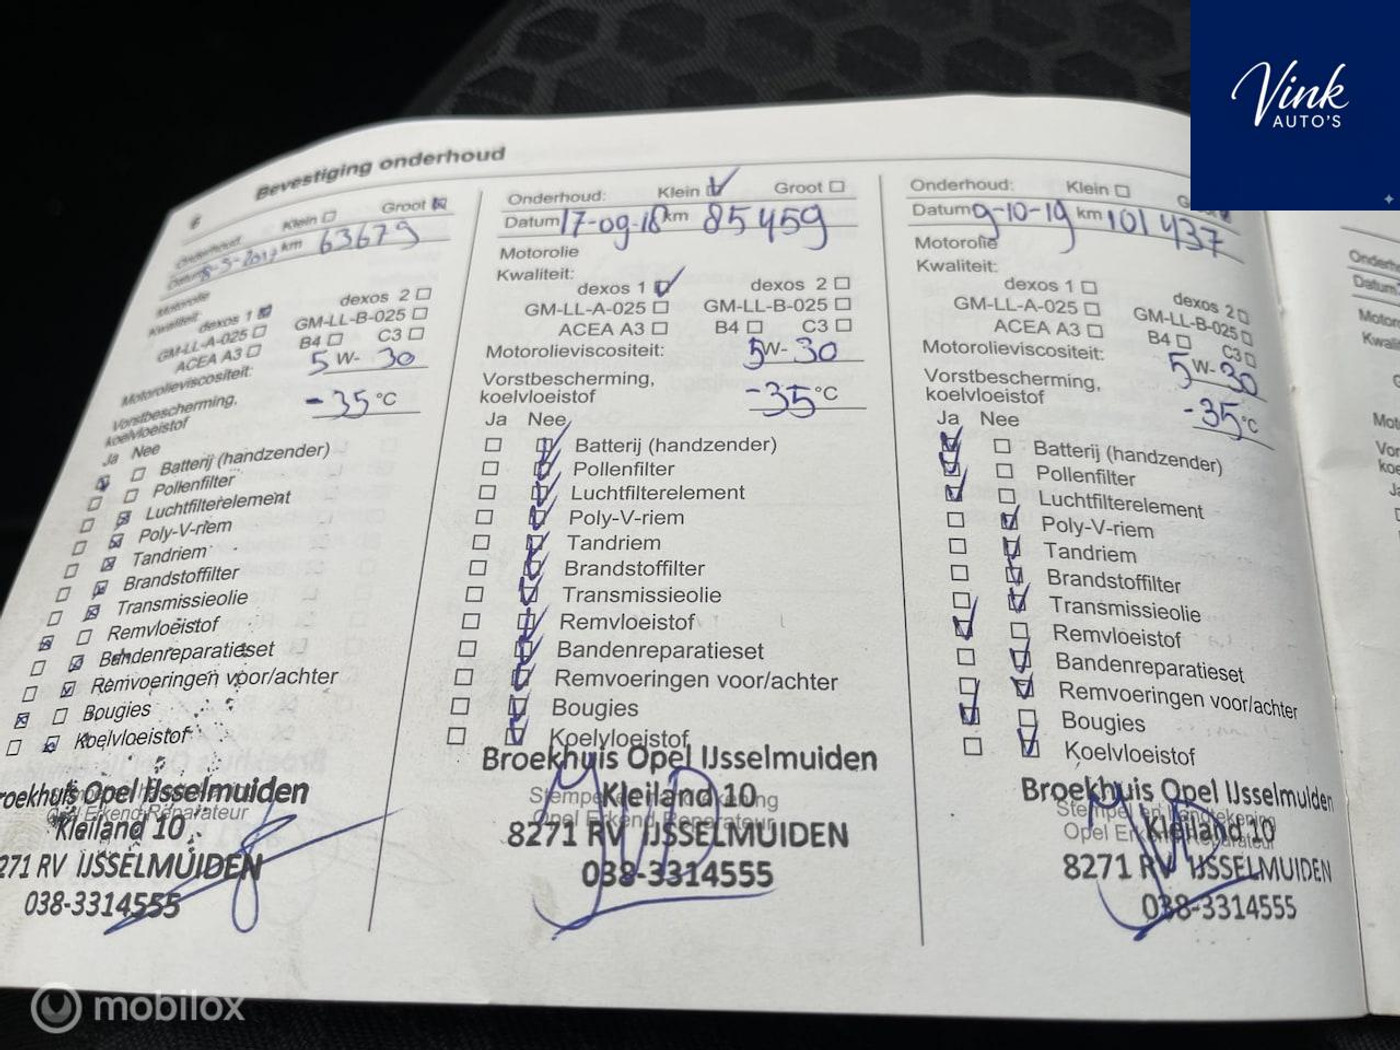 Vink
AUTO'S
Bevestiging onderhoud
6
Onderhoud: Klein Groot
Datum km 63679
Motorolie
Kwaliteit:
dexos 1 dexos 2
GM-LL-A-025 GM-LL-B-025
ACEA A3 B4 C3
Motorolieviscositeit: 5 W- 30
Vorstbescherming,
koelvloeistof -35 °C
Ja Nee
Batterij (handzender)
Pollenfilter
Luchtfilterelement
Poly-V-riem
Tandriem
Brandstoffilter
Transmissieolie
Remvloeistof
Bandenreparatieset
Remvoeringen voor/achter
Bougies
Koelvloeistof
roekhuis Opel IJsselmuiden
Opel Erkend Reparateur
Kleiland 10
271 RV IJSSELMUIDEN
038-3314555
Onderhoud: Klein Groot
Datum 17-09-18 km 85459
Motorolie
Kwaliteit:
dexos 1 dexos 2
GM-LL-A-025 GM-LL-B-025
ACEA A3 B4 C3
Motorolieviscositeit: 5W- 30
Vorstbescherming,
koelvloeistof -35°C
Ja Nee
Batterij (handzender)
Pollenfilter
Luchtfilterelement
Poly-V-riem
Tandriem
Brandstoffilter
Transmissieolie
Remvloeistof
Bandenreparatieset
Remvoeringen voor/achter
Bougies
Koelvloeistof
Broekhuis Opel IJsselmuiden
Kleiland 10
Opel Erkend Reparateur
8271 RV IJSSELMUIDEN
038-3314555
Onderhoud: Klein
Datum 9-10-19 km 101437
Motorolie
Kwaliteit:
dexos 1 dexos 2
GM-LL-A-025 GM-LL-B-025
ACEA A3 B4 C3
Motorolieviscositeit: 5W-30
Vorstbescherming,
koelvloeistof -35°C
Ja Nee
Batterij (handzender)
Pollenfilter
Luchtfilterelement
Poly-V-riem
Tandriem
Brandstoffilter
Transmissieolie
Remvloeistof
Bandenreparatieset
Remvoeringen voor/achter
Bougies
Koelvloeistof
Broekhuis Opel IJsselmuiden
Stempel en handtekening
Opel Erkend Reparateur
Kleiland 10
8271 RV IJSSELMUIDEN
038-3314555
mobilox